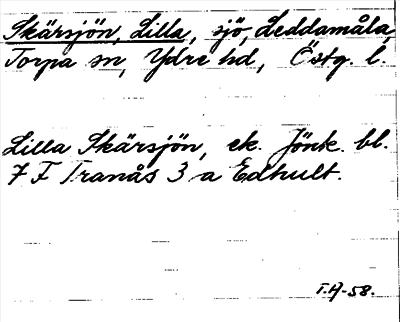 Skärsjön, Lilla, sjö, Leddamåla
Torpa sn, Ydre hd, Östg. l.
Lilla Skärsjön, ek. Jönk. bl.
7 F Tranås 3 a Edhult.
T.A-58.